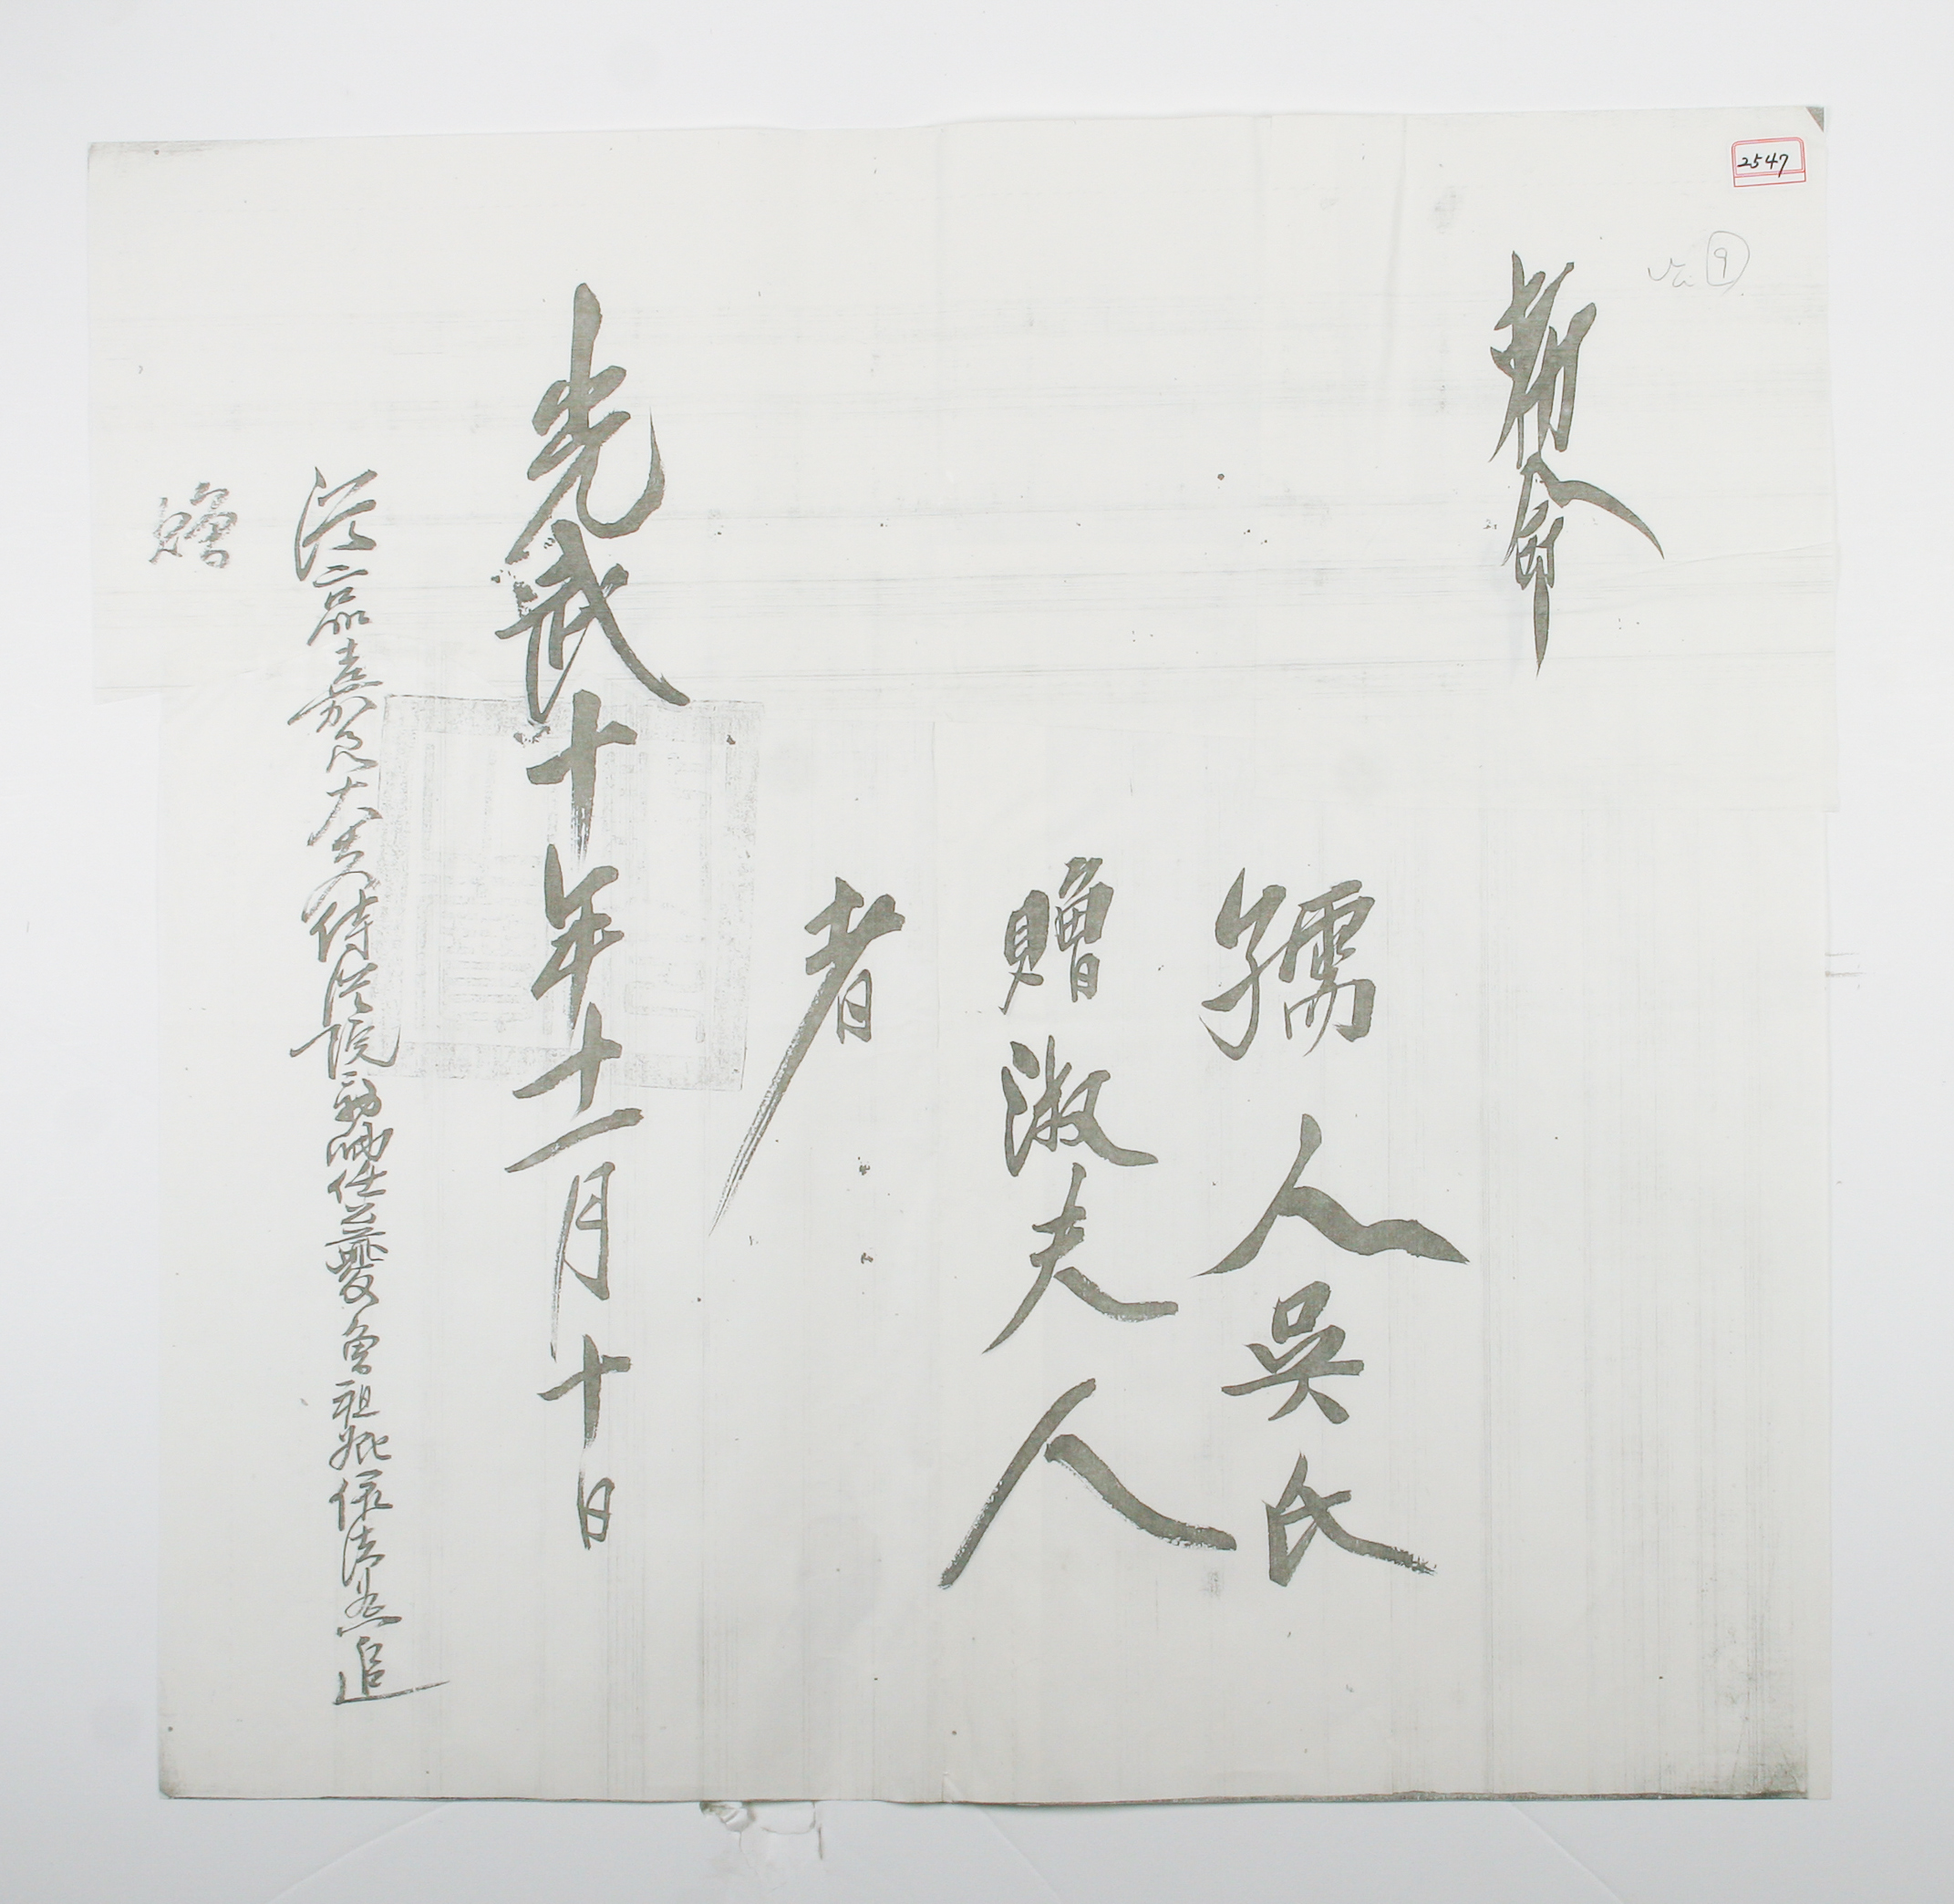 2547
9
勅命
孺人吳氏
贈淑夫人
者
光武十年十一月十日
從二品嘉善大夫侍從院副卿任夔曾祖妣依法典追
贈